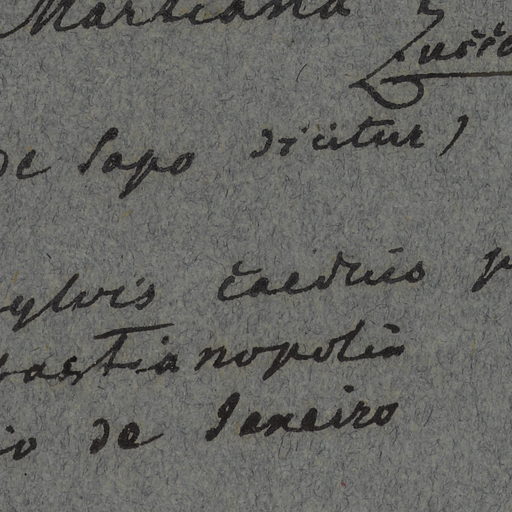 Martiana
Zucc
de Sapo dicitur)
sylvis caeduis p
bastianopolin
io de Janeiro